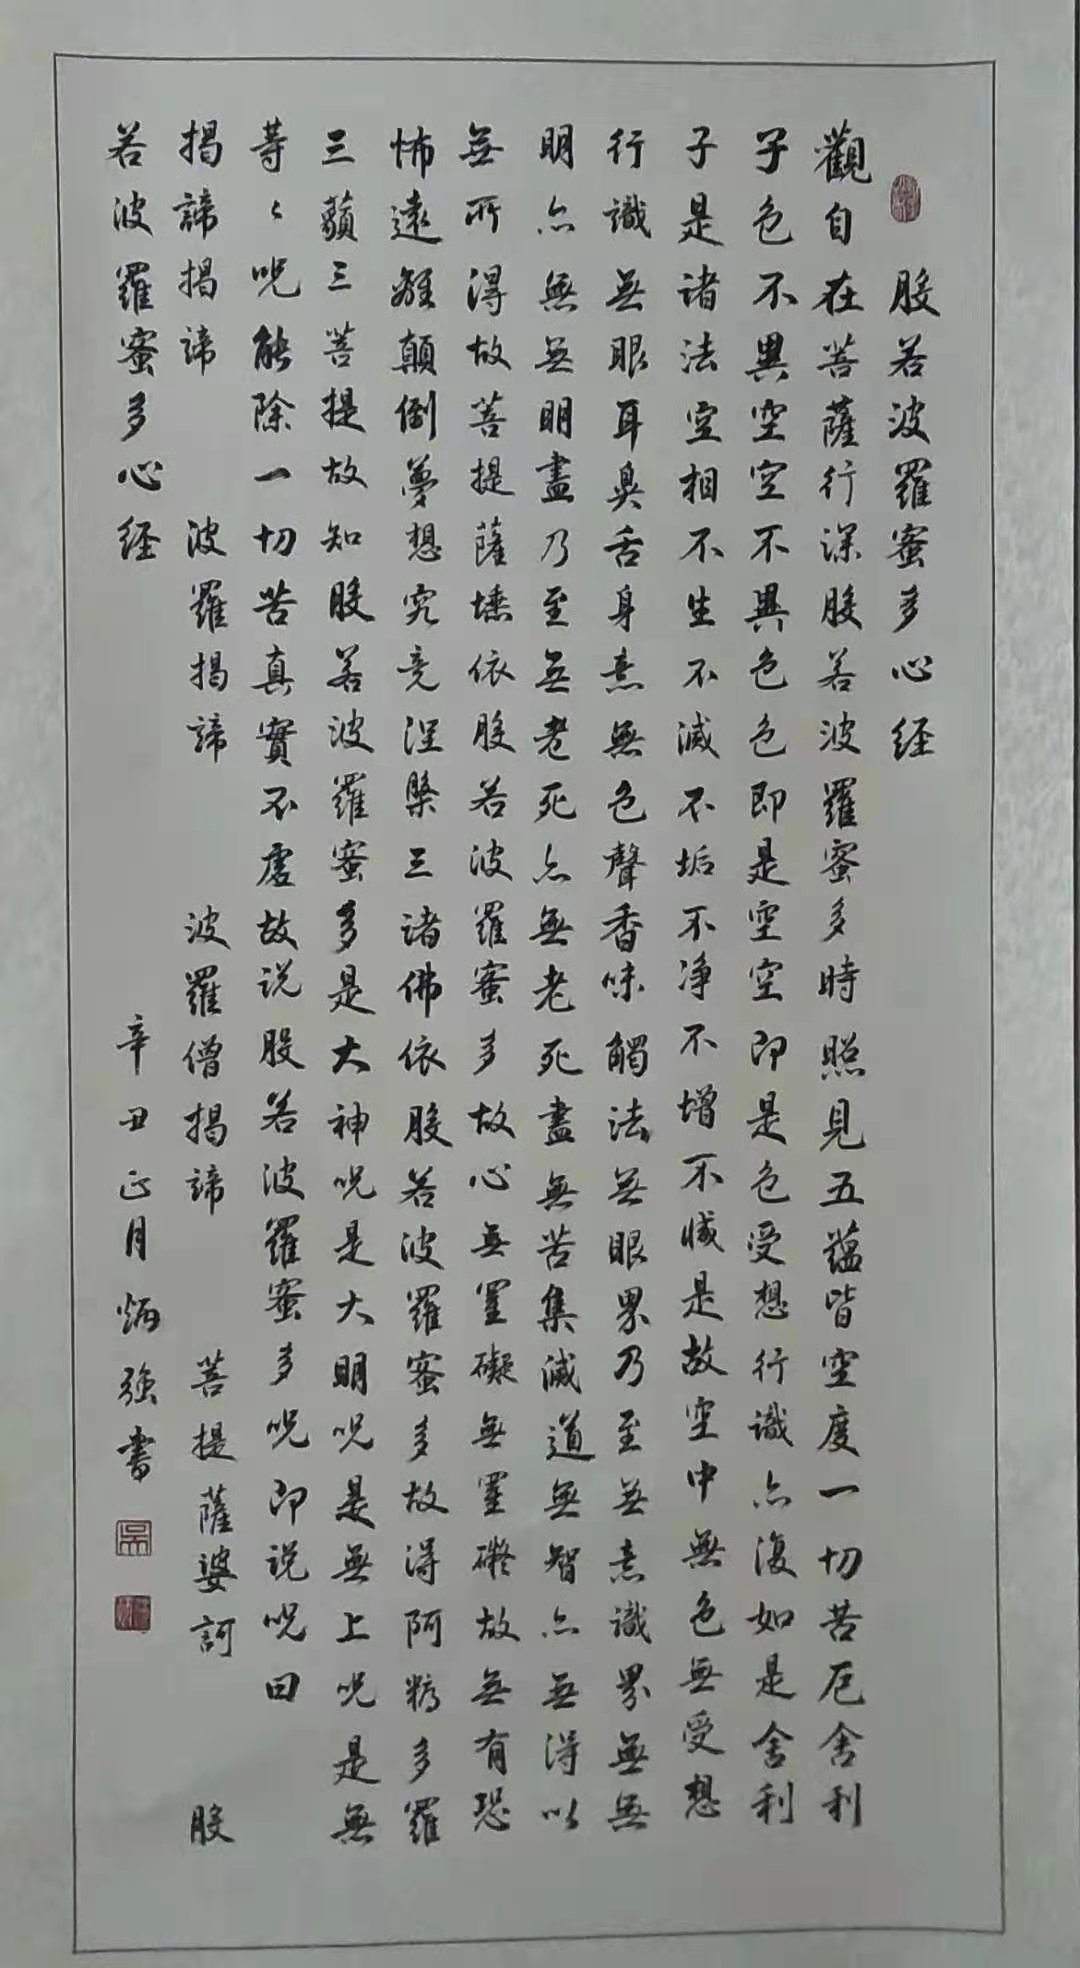 般若波羅蜜多心经
觀自在菩薩行深般若波羅蜜多時照見五蘊皆空度一切苦厄舍利
子色不異空空不異色色即是空空即是色受想行識亦復如是舍利
子是诸法空相不生不滅不垢不净不增不減是故空中無色無受想
行識無眼耳鼻舌身意無色聲香味觸法無眼界乃至無意識界無無
明亦無無明盡乃至無老死亦無老死盡無苦集滅道無智亦無得以
無所得故菩提薩埵依般若波羅蜜多故心無罣礙無罣礙故無有恐
怖遠離顛倒夢想究竟涅槃三诸佛依般若波羅蜜多故得阿耨多羅
三藐三菩提故知般若波羅蜜多是大神呪是大明呪是無上呪是無
等々呪能除一切苦真實不虛故说般若波羅蜜多呪即说呪曰
揭諦揭諦 波羅揭諦 波羅僧揭諦 菩提薩婆訶 般
若波羅蜜多心经 辛丑正月炳强書